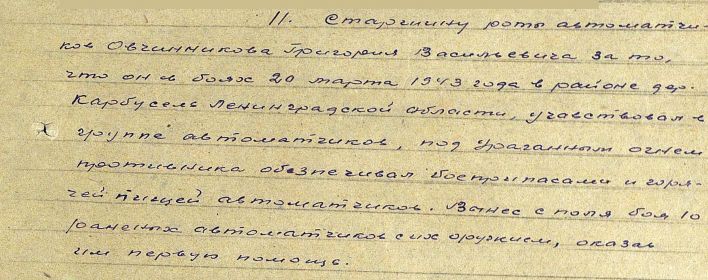 11. Старшину роты автоматчи-
ков Овчинникова Григория Васильевича за то,
что он в боях 20 марта 1943 года в районе дер.
Карбусель Ленинградской области, учавствовал в
группе автоматчиков, под ураганным огнем
противника обезпечивал боеприпасами и горя-
чей пищей автоматчиков. Вынес с поля боя 10
раненых автоматчиков с их оружием, оказав
им первую помощь.